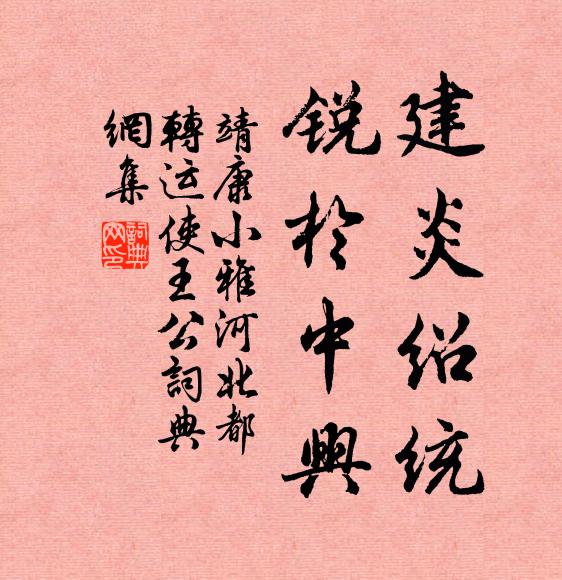 建炎绍统
锐於中興
靖康小雅河北都
轉运使王公詞典
網集
詞典
网印